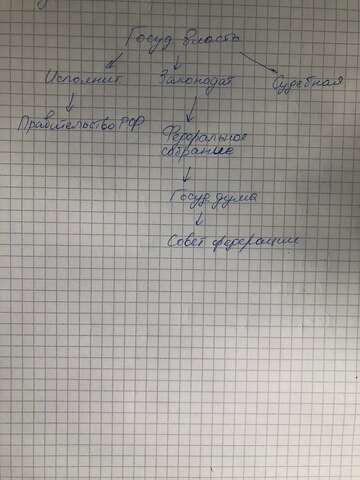 Госуд власть
Исполнит Законодат Судебная
Правительство РФ
Федеральное
собрание
Госуд дума
Совет федерации